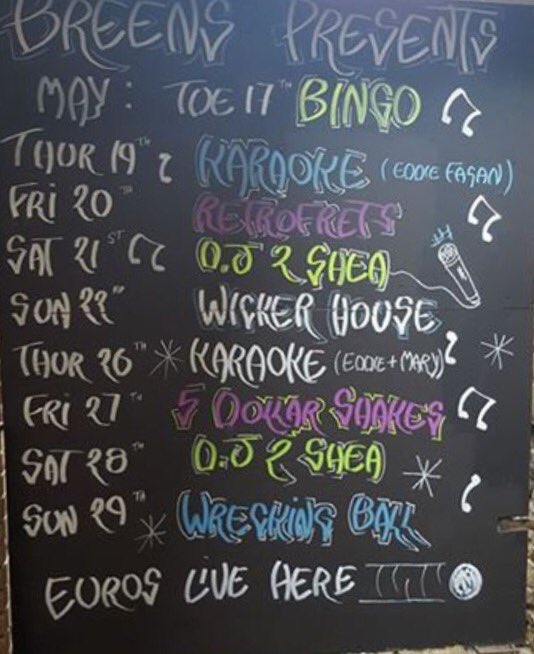 BREENS PRESENTS
MAY: TUE 17TH BINGO
THUR 19TH KARAOKE (EDDIE FAGAN)
FRI 20TH RETROFRETS
SAT 21ST D.J 2 SHEA
SUN 22ND WICKER HOUSE
THUR 26TH KARAOKE (EDDIE + MARY)
FRI 27TH 5 DOLLAR SHAKES
SAT 28TH D.J 2 SHEA
SUN 29TH WRECKING BALL
EUROS LIVE HERE